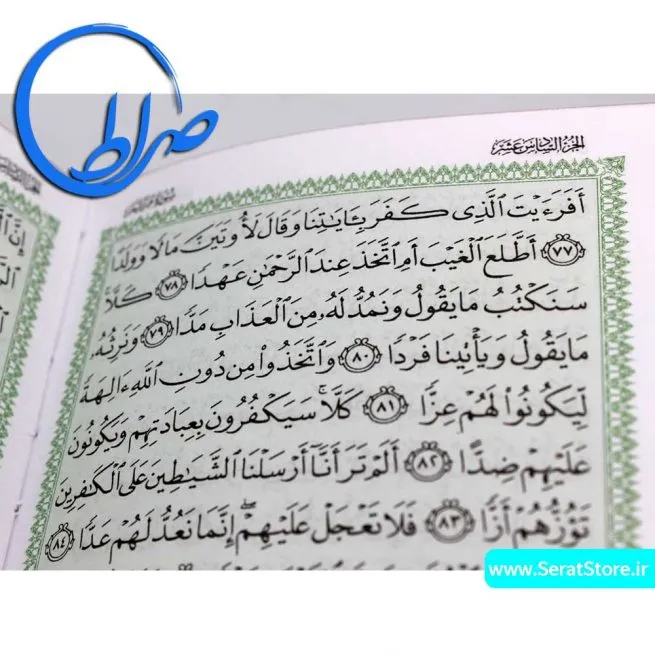 صراط
الجزء السادس عشر
أَفَرَءَيْتَ ٱلَّذِى كَفَرَ بِـَٔايَـٰتِنَا وَقَالَ لَأُوتَيَنَّ مَالًا وَوَلَدًا
﴿٧٧﴾ أَطَّلَعَ ٱلْغَيْبَ أَمِ ٱتَّخَذَ عِندَ ٱلرَّحْمَـٰنِ عَهْدًا ﴿٧٨﴾ كَلَّا
سَنَكْتُبُ مَا يَقُولُ وَنَمُدُّ لَهُۥ مِنَ ٱلْعَذَابِ مَدًّا ﴿٧٩﴾ وَنَرِثُهُۥ
مَا يَقُولُ وَيَأْتِينَا فَرْدًا ﴿٨٠﴾ وَٱتَّخَذُوا۟ مِن دُونِ ٱللَّهِ ءَالِهَةً
لِّيَكُونُوا۟ لَهُمْ عِزًّا ﴿٨١﴾ كَلَّا ۚ سَيَكْفُرُونَ بِعِبَادَتِهِمْ وَيَكُونُونَ
عَلَيْهِمْ ضِدًّا ﴿٨٢﴾ أَلَمْ تَرَ أَنَّآ أَرْسَلْنَا ٱلشَّيَـٰطِينَ عَلَى ٱلْكَـٰفِرِينَ
تَؤُزُّهُمْ أَزًّا ﴿٨٣﴾ فَلَا تَعْجَلْ عَلَيْهِمْ ۖ إِنَّمَا نَعُدُّ لَهُمْ عَدًّا ﴿٨٤﴾
www.SeratStore.ir